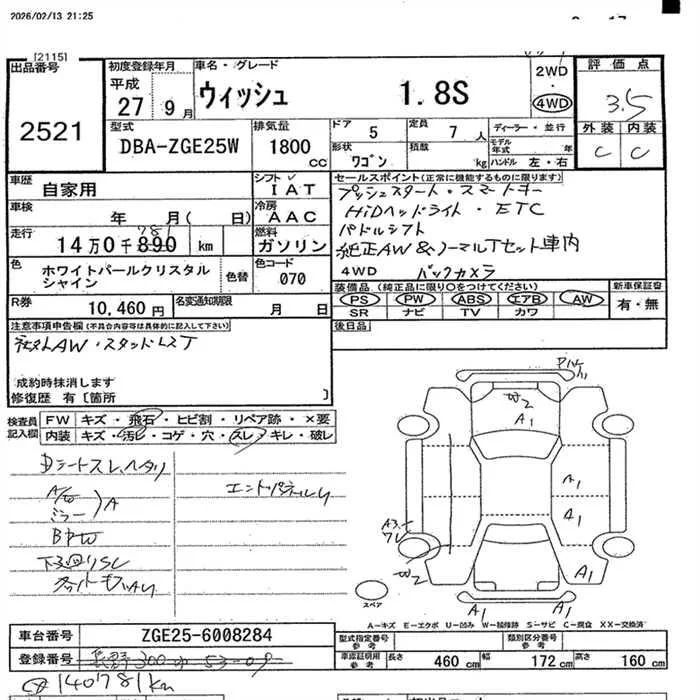 2026/02/13 21:25
[2115]
出品番号
2521
初度登録年月
平成
27 9月
車名・グレード
ウィッシュ 1.8S
2WD
・
4WD
評価点
3.5
外装 内装
C C
型式
DBA-ZGE25W
排気量
1800 cc
ドア 5
定員 7 人
形状 ワゴン
積載 kg
ディーラー・並行
モデル年式 年
ハンドル 左・右
車歴 自家用
シフト IAT
車検 年 月( 日)
冷房 AAC
走行 14万0千890 km
781
燃料 ガソリン
色 ホワイトパールクリスタルシャイン
色替
色コード 070
R券 10,460円
名変通知期限 月 日
セールスポイント(正常に機能するものに限ります)
プッシュスタート・スマートキー
HiDヘッドライト・ETC
パドルシフト
純正AW&ノーマルTセット車内
4WD バックカメラ
装備品(純正品に限り○をつけてください)
PS PW ABS エアB AW
SR ナビ TV カワ
新車保証書
有・無
後日品
注意事項申告欄(不具合内容等は具体的に記入して下さい)
社外AW・スタッドレスT
成約時抹消します
修復歴 有〔箇所 〕
検査員記入欄
FW キズ・飛石・ヒビ割・リペア跡・×要
内装 キズ・汚レ・コゲ・穴・スレ・キレ・破レ
Dシートスレ、ヘタリ
ミラー
A
A1
W2
A1
A1
A1
A1
A1
A3
W2
スペア
A-キズ E-エクボ U-凹み W-補修跡 S-サビ C-腐食 XX-交換済
車台番号 ZGE25-6008284
登録番号
140781km
型式指定番号 参考
類別区分番号 参考
車庫証明用 参考
長さ 460 cm
幅 172 cm
高さ 160 cm